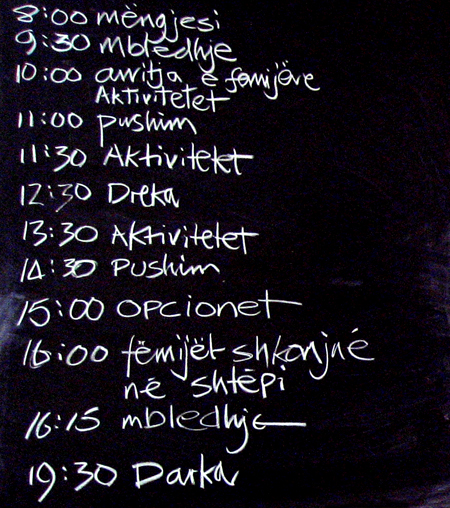 8:00 mëngjesi
9:30 mbledhje
10:00 arritja e femijëve
Aktivitetet
11:00 pushim
11:30 Aktivitetet
12:30 Dreka
13:30 Aktivitetet
14:30 pushim
15:00 opcionet
16:00 fëmijët shkonjnë
në shtëpi
16:15 mbledhje
19:30 Darka